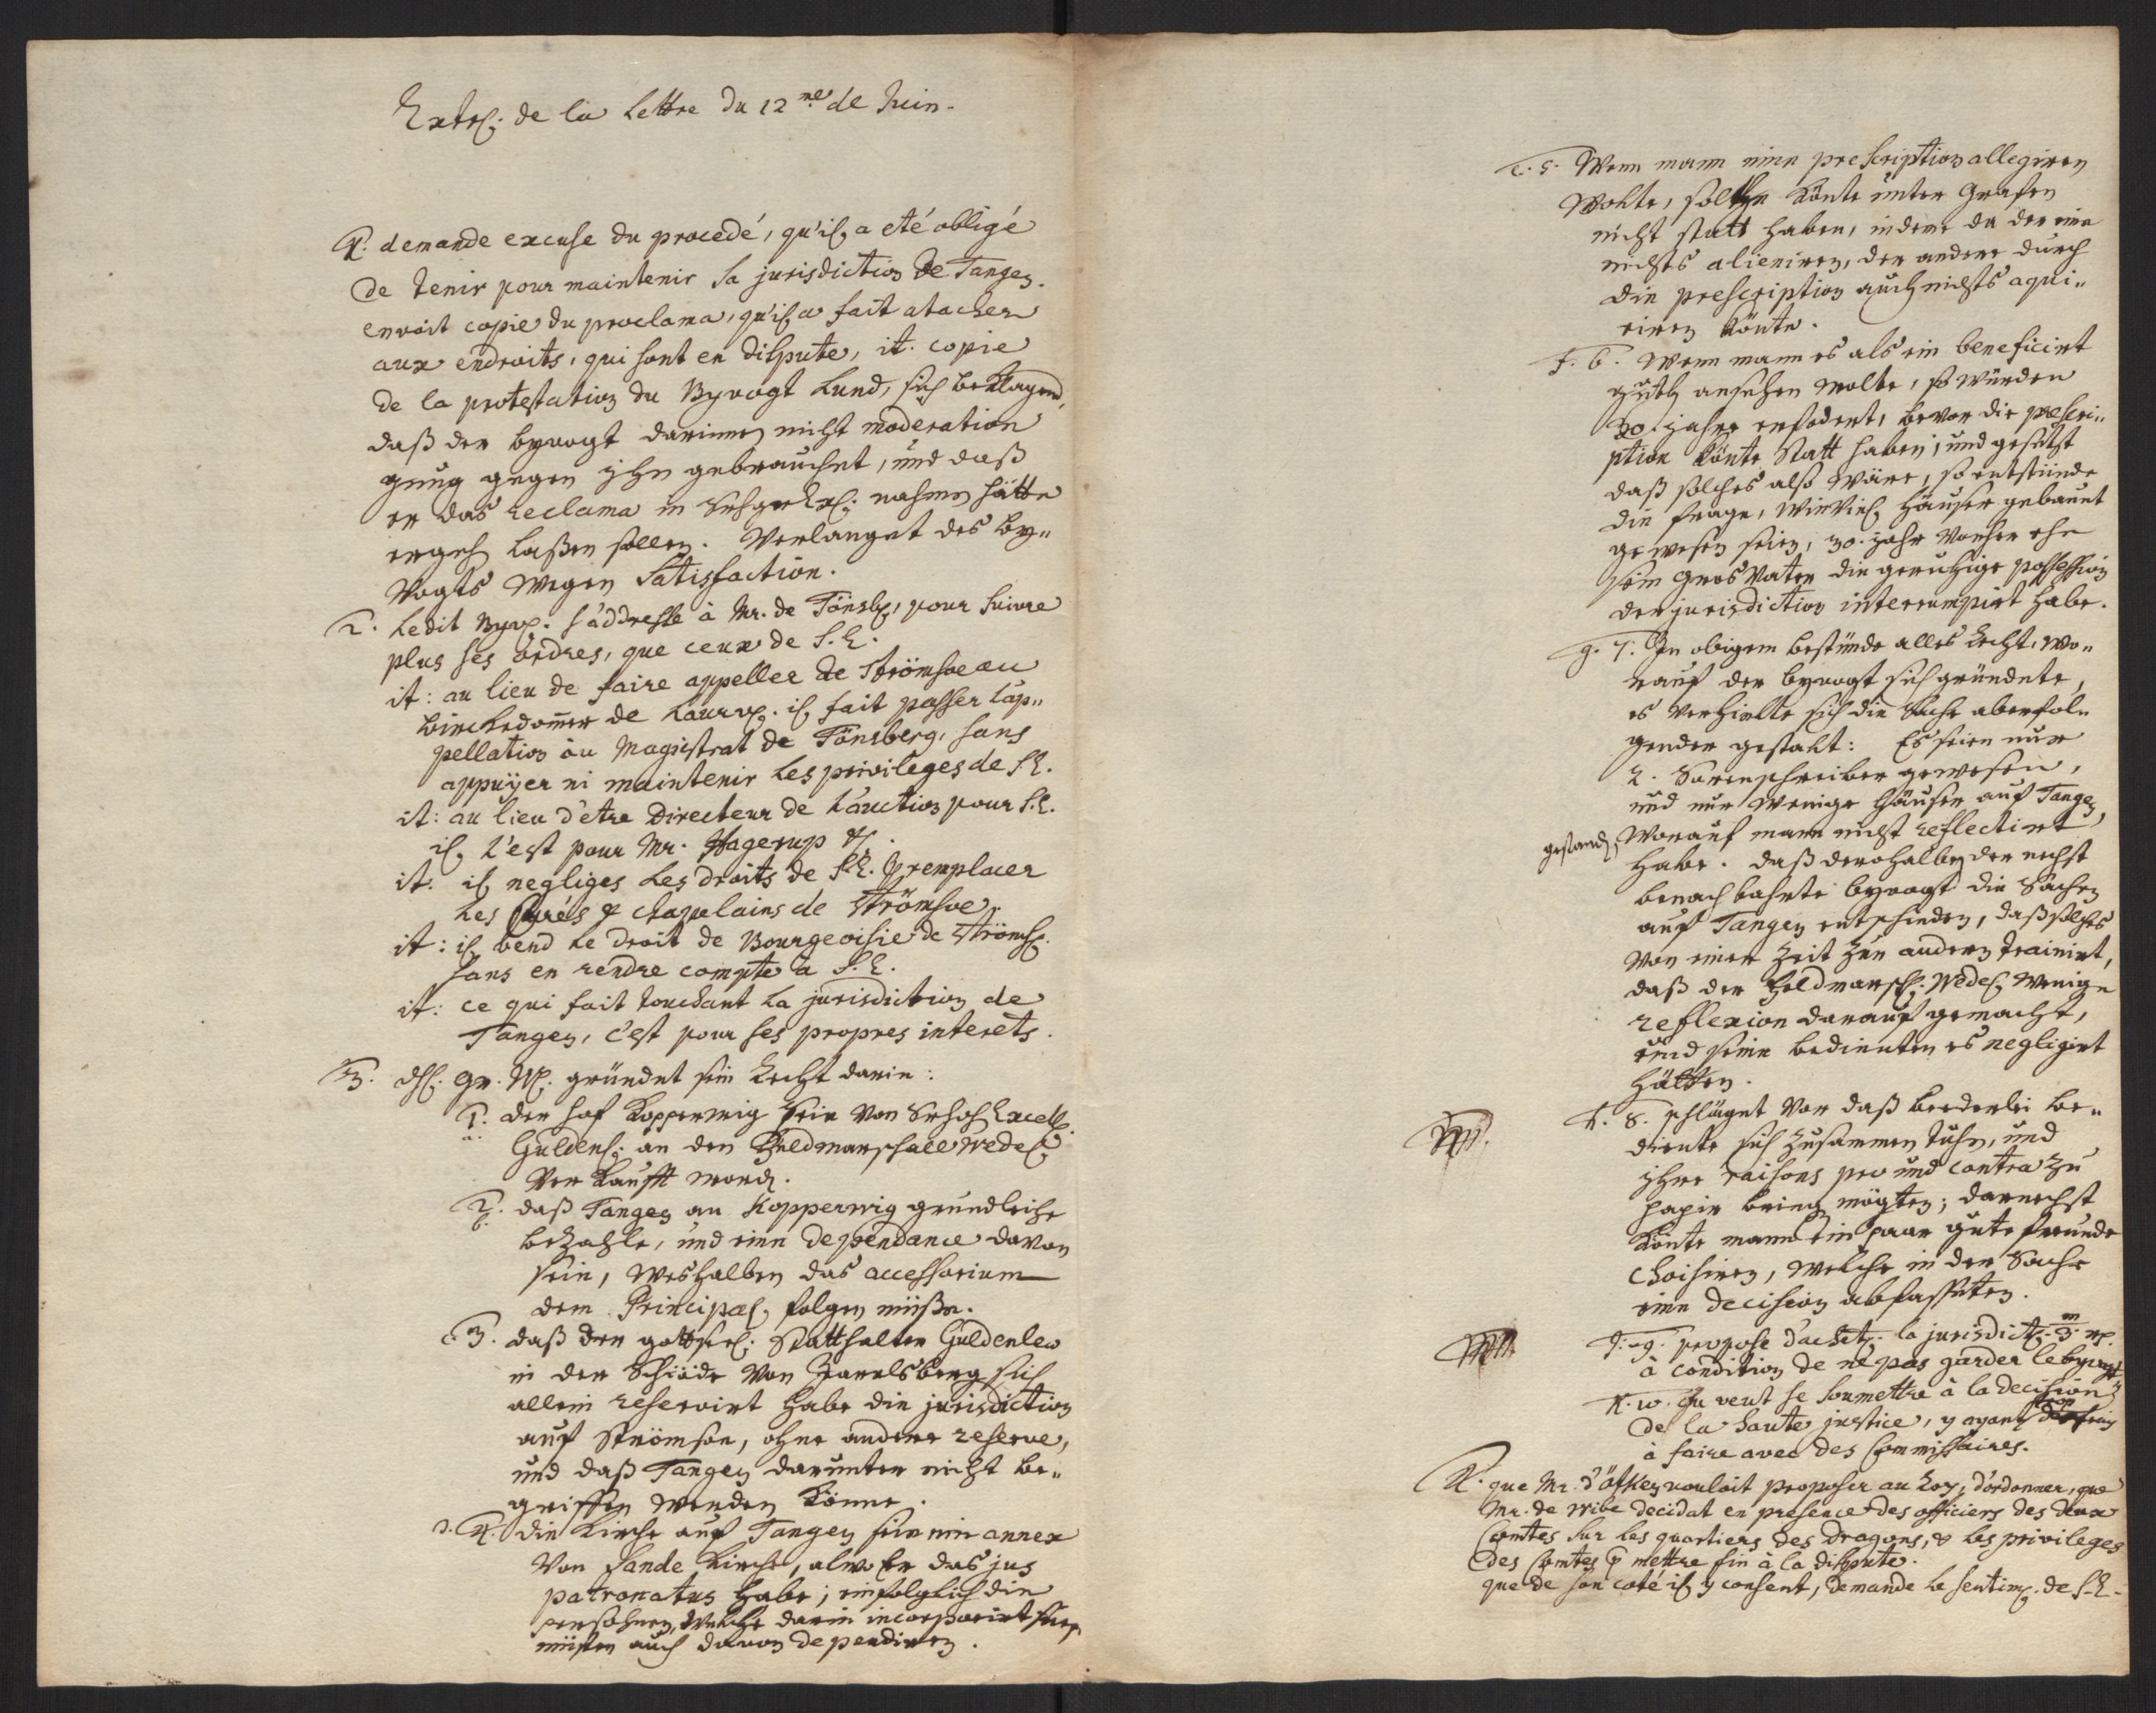 Extr. de la Lettre du 12me de Juin.
1. demande excuse du procedé, qu'il a eté obligé
de tenir pour maintenir sa jurisdiction de Tangen.
envoit copie du proclama, qu'il a fait atacher
aux endroits, qui sont en dispute, it. copie
de la protestation du Byvogt Lund, sich beklagend,
daß der byvogt darinnen nicht moderation
genug gegen ihn gebrauchet, und daß
er das reclama in Sr hgr Ex. nahmen hätte
ergeh laßen sollen. Verlanget des by„
Vogts wegen Satisfaction.
2. Ledit Byv. s'addresse à Mr. de Tönsb. pour suivre
plus ses ordres, que ceux de S. E.
it: au lieu de faire appeller de Strömsoe au
birckedomer de Laurv. il fait passer l'ap„
pellation au Magistrat de Tönsberg, sans
appuÿer ni maintenir les privileges de S E.
it: au lieu d'etre Directeur de l'auction pour S. E.
il l'est pour Mr. Hagerup
it. il negliges les droits de S E. remplacer
les Curés & chapelains de Strömsoe.
it: il vend le droit de Bourgeoisie de Strömsoe
sans en rendre compte à S. E.
it: ce qui fait touchant la jurisdiction de
Tangen, c'est pour ses propres interets.
3. Gr. W. gründet sein Recht darin:
1. der hof Kopperwig sein von Sr hoh Excell.
a. Guldenl. an den Feldmarschall Wedel
verkaufft word.
2. daß Tangen an Kopperwig grundleihe
b. bezahle, und eine dependance davon
sein, weshalben das accessorium
dem Principal folgen müße.
c. 3. daß der gottsel. Statthalter Güldenlew
in der Schiöde von Jarelsberg sich
allein reservirt habe die jurisdiction
auf Strömsoe, ohne andere reserve,
und daß Tangen darunter nicht be„
griffen werden könne.
d. 4. die Kirche auf Tangen sein ein annex
von Sande Kirche, alwo er das jus
patronatus habe; einfolglich die
persohnen, welche darin incorporirt sein,
müsten auch davon dependiren.
e. 5. Wenn mann eine prescription allegiren
wolte, solche könte unter Grafen
nicht statt haben, indeme da der eine
nichts alieniren, der andere durch
die prescription auch nichts aqui„
riren könte.
f. 6. Wenn mann es als ein beneficirt
guth ansehen wolte, so würden
30. jahre erfodert, bevor die prescri„
ption könte Statt haben; und gesetzt
daß solches also wäre, so entstünde
die frage, wieviel Häuser gebauet
gewesen seien, 30. jahr vorher ehe
sein Gros Vater die geruhige possession
der jurisdiction interrumpirt habe.
g. 7. In obigem bestünde alles Recht, wo„
rauf der byvogt sich gründete,
es verhielte sich die Sache aber fol„
gender gestalt: Es seien nur
2. Sorenschreiber gewesen,
und nur wenige Häuser auf Tangen
gestand. worauf mann nicht reflectirt
habe. daß derohalben der nechst
benachbahrte byvogt die Sachen
auf Tangen entschieden, daß solches
von einer Zeit zur andern trainirt,
daß der Feldmarsch. Wedel wenige
reflexion darauf gemacht,
und seine bedienten es negligirt
hätten.
h. 8. schläget vor daß beederlei be„
diente sich zusammen tuhn, und
ihre raisons pro und contra zu
papir bring mögten; darnechst
könte mann ein paar gute freunde
choisiren, welche in der Sache
eine decision abfasseten.
i. 9. propose d'achet. la jurisdict. 3
à condition de ne pas garder le byvogt
K. 10. Ou veut se soumettre à la decision
de la haute justice, y ayant trop
à faire avec des Commissaires.
4. que Mr. d'Öfken vouloit proposer au Roy, d'ordonner, que
Mr. de Wibe decidat en presence des officiers des deux
Comtes sur les quartiers des Dragons, & les privileges
des Comtes & mettre fin à la dispute.
que de son coté il y consent, demande le sentim. de S. E.